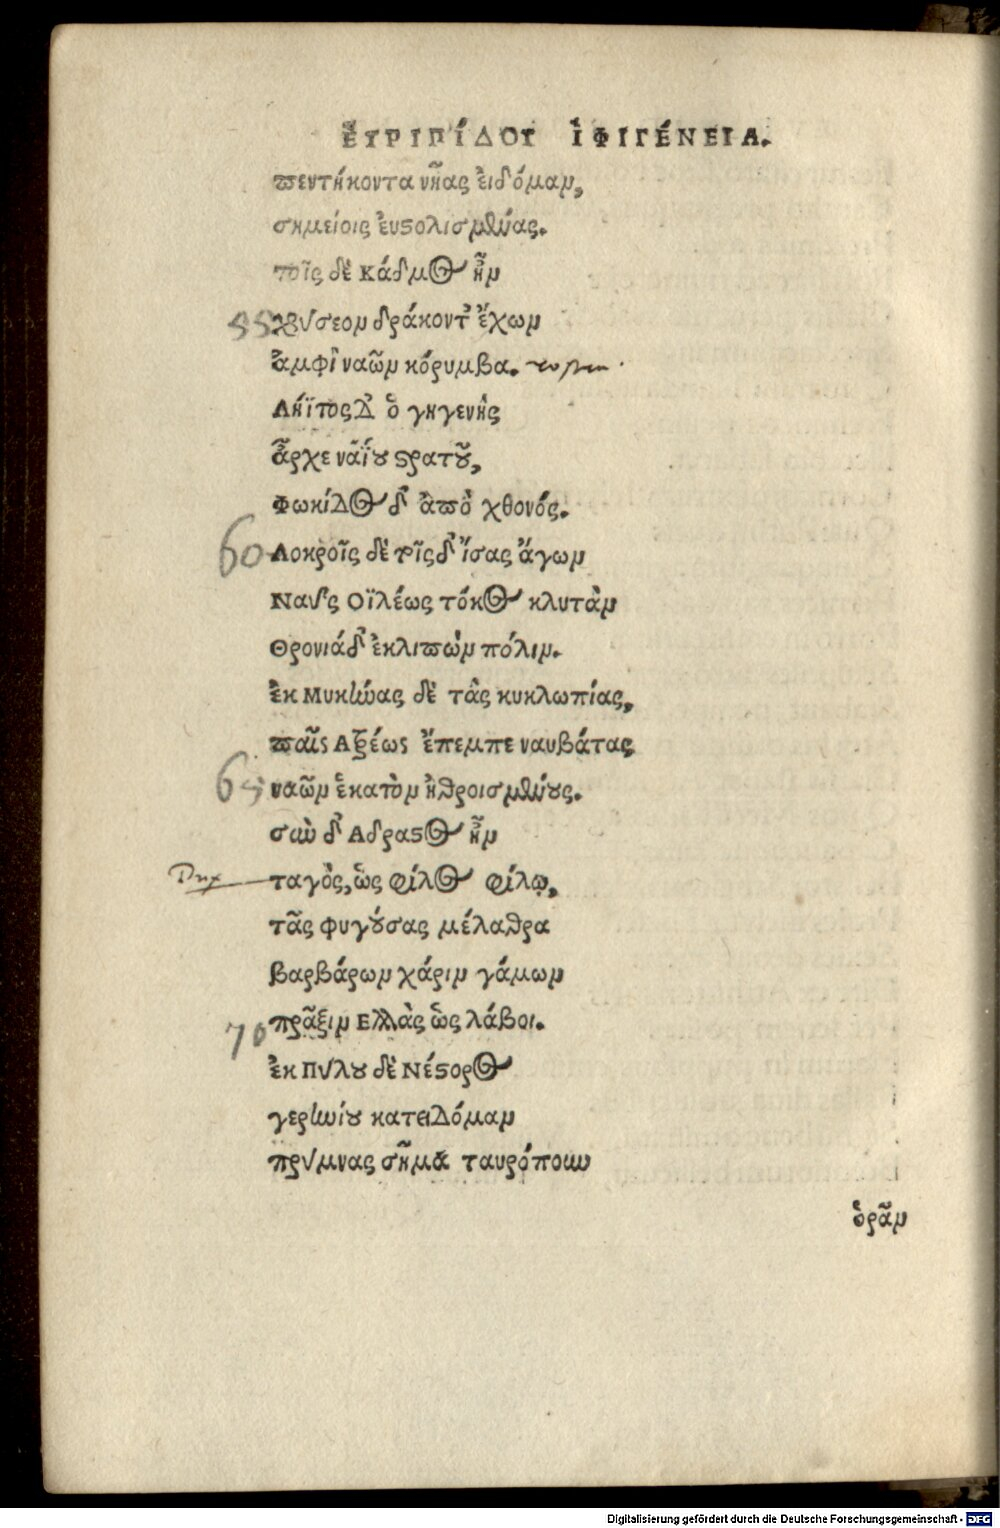 ἘΥΡΙΠΊΔΟΥ ἸΦΙΓΈΝΕΙΑ.
πεντήκοντα νῆας ἐιδόμαν,
σημείοις ἐυστολισμένας.
τοῖς δὲ Κάδμος ἦν
55 χρύσεον δράκοντ' ἔχων
ἀμφὶ ναῶν κόρυμβα.
Λήϊτος Δ' ὁ γηγενὴς
ἆρχε ναΐου στρατοῦ,
Φωκίΐδος δ' ἀπὸ χθονός.
60 Λοκροῖς δὲ τοῖς δ' ἴσας ἄγων
Ναῦς Οϊλέως τόκος κλυτὰν
Θρονιάδ' ἐκλιπὼν πόλιν.
ἐκ Μυκήνας δὲ τᾶς κυκλωπίας,
παῖς Ατρέως ἔπεμπε ναυβάτας
65 ναῶν ἑκατὸν ἠθροισμένους.
σὺν δ' Αδραστος ἦν
ταγὸς, ὡς φίλος φίλῳ,
τᾶς φυγούσας μέλαθρα
βαρβάρων χάριν γάμων
70 πρᾶξιν Ελλὰς ὡς λάβοι.
ἐκ Πύλου δὲ Νέστορος
γερηνίου κατειδόμαν
πρύμνας σῆμα ταυρόπουν
ὁρᾶν
Digitalisierung gefördert durch die Deutsche Forschungsgemeinschaft - DFG